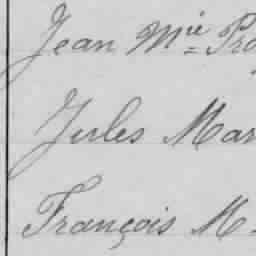 Jean Mie Pro
Jules Mar
François M